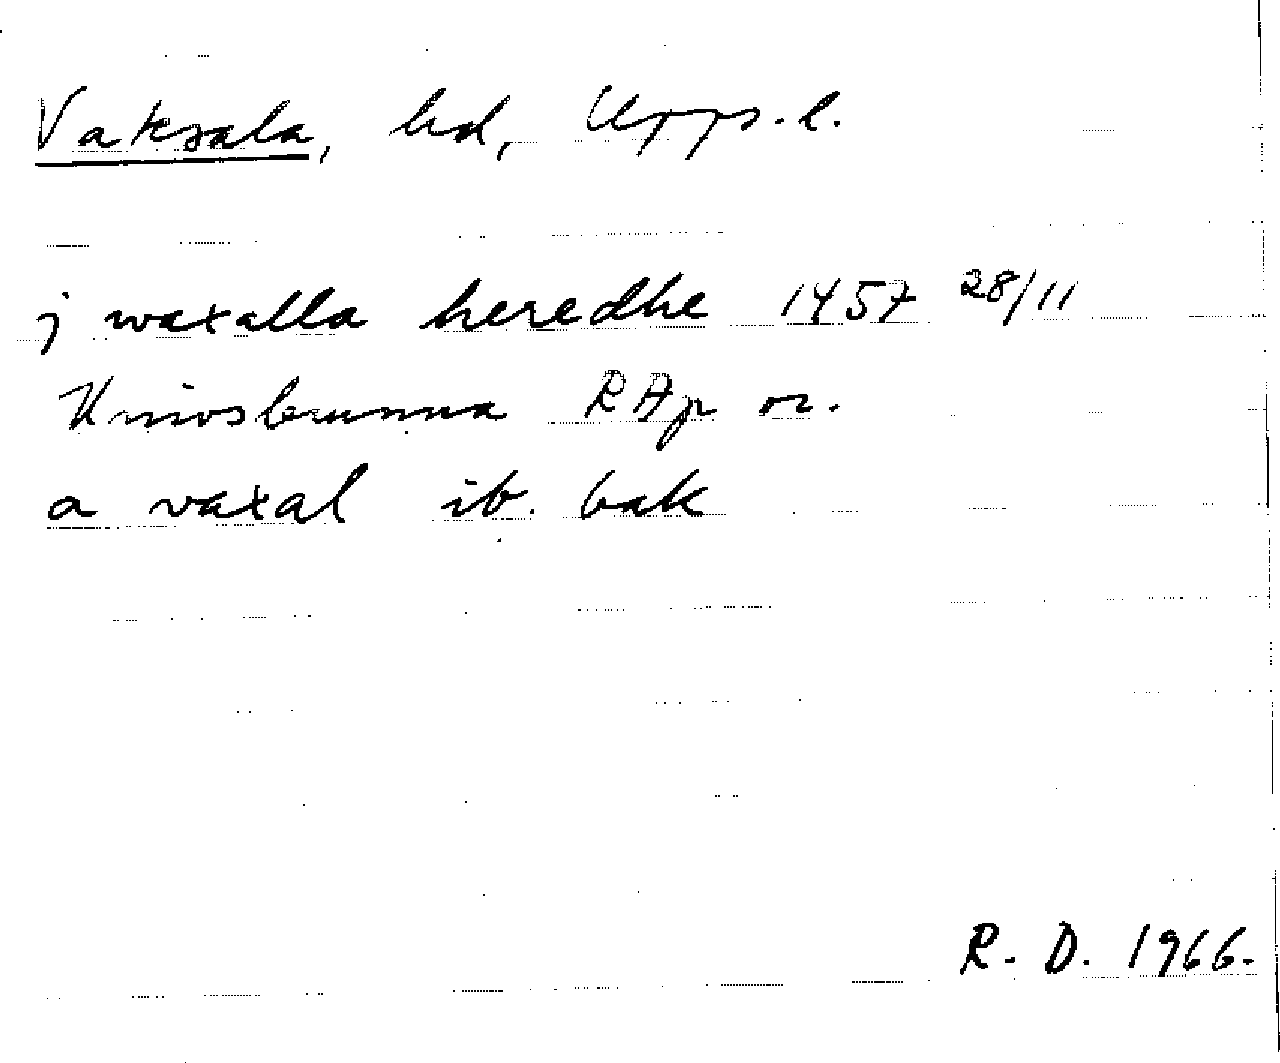 Vaksala, hd, Upps. l.
j waxalla heredhe 1457 28/11
Knivsbrunna RAp or.
a vaxal ib. bak
R. D. 1966.